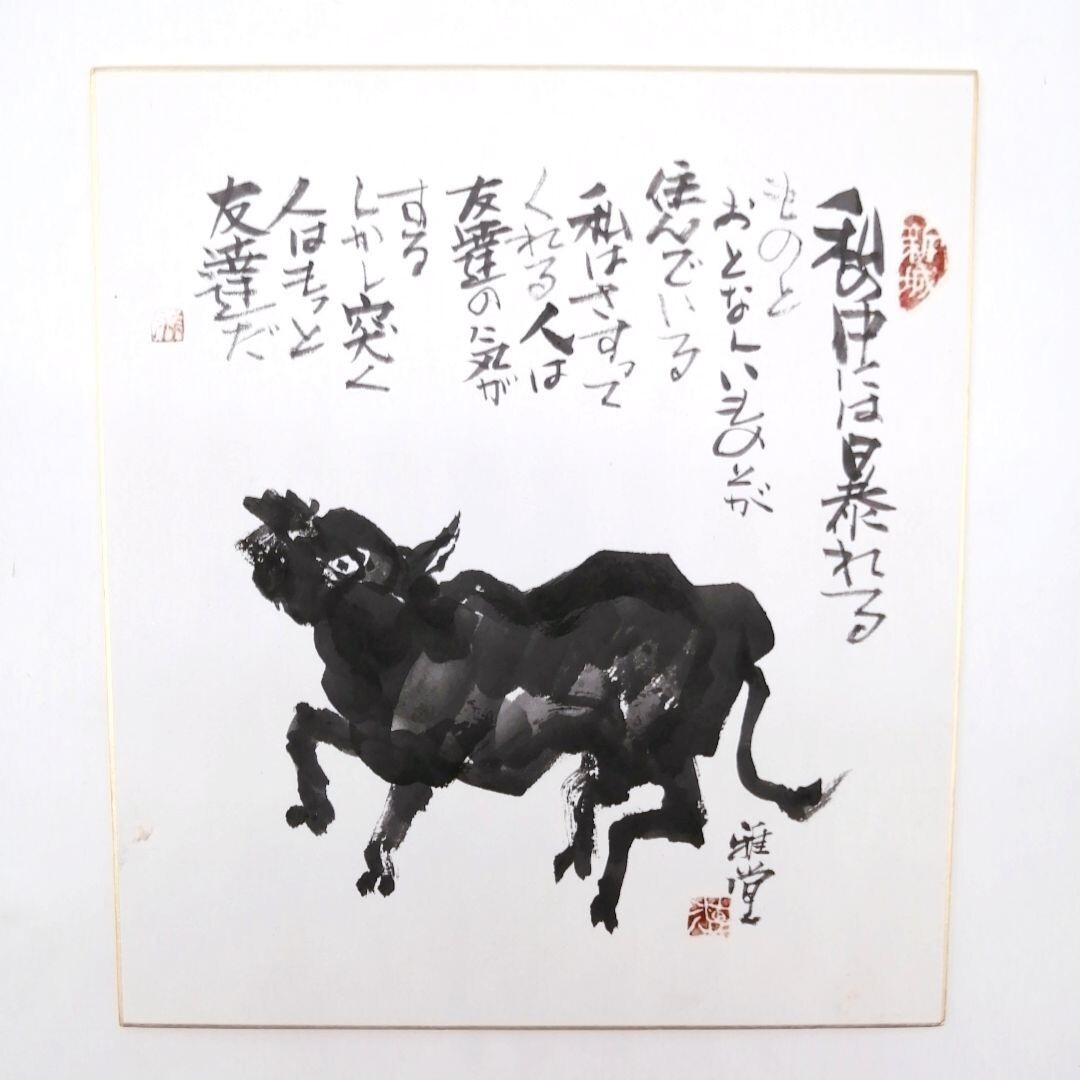 新城
私の中には暴れる
ものと
おとなしいものとが
住んでいる
私はさすって
くれる人は
友達の気が
する
しかし突く
人はもっと
友達だ
雅堂